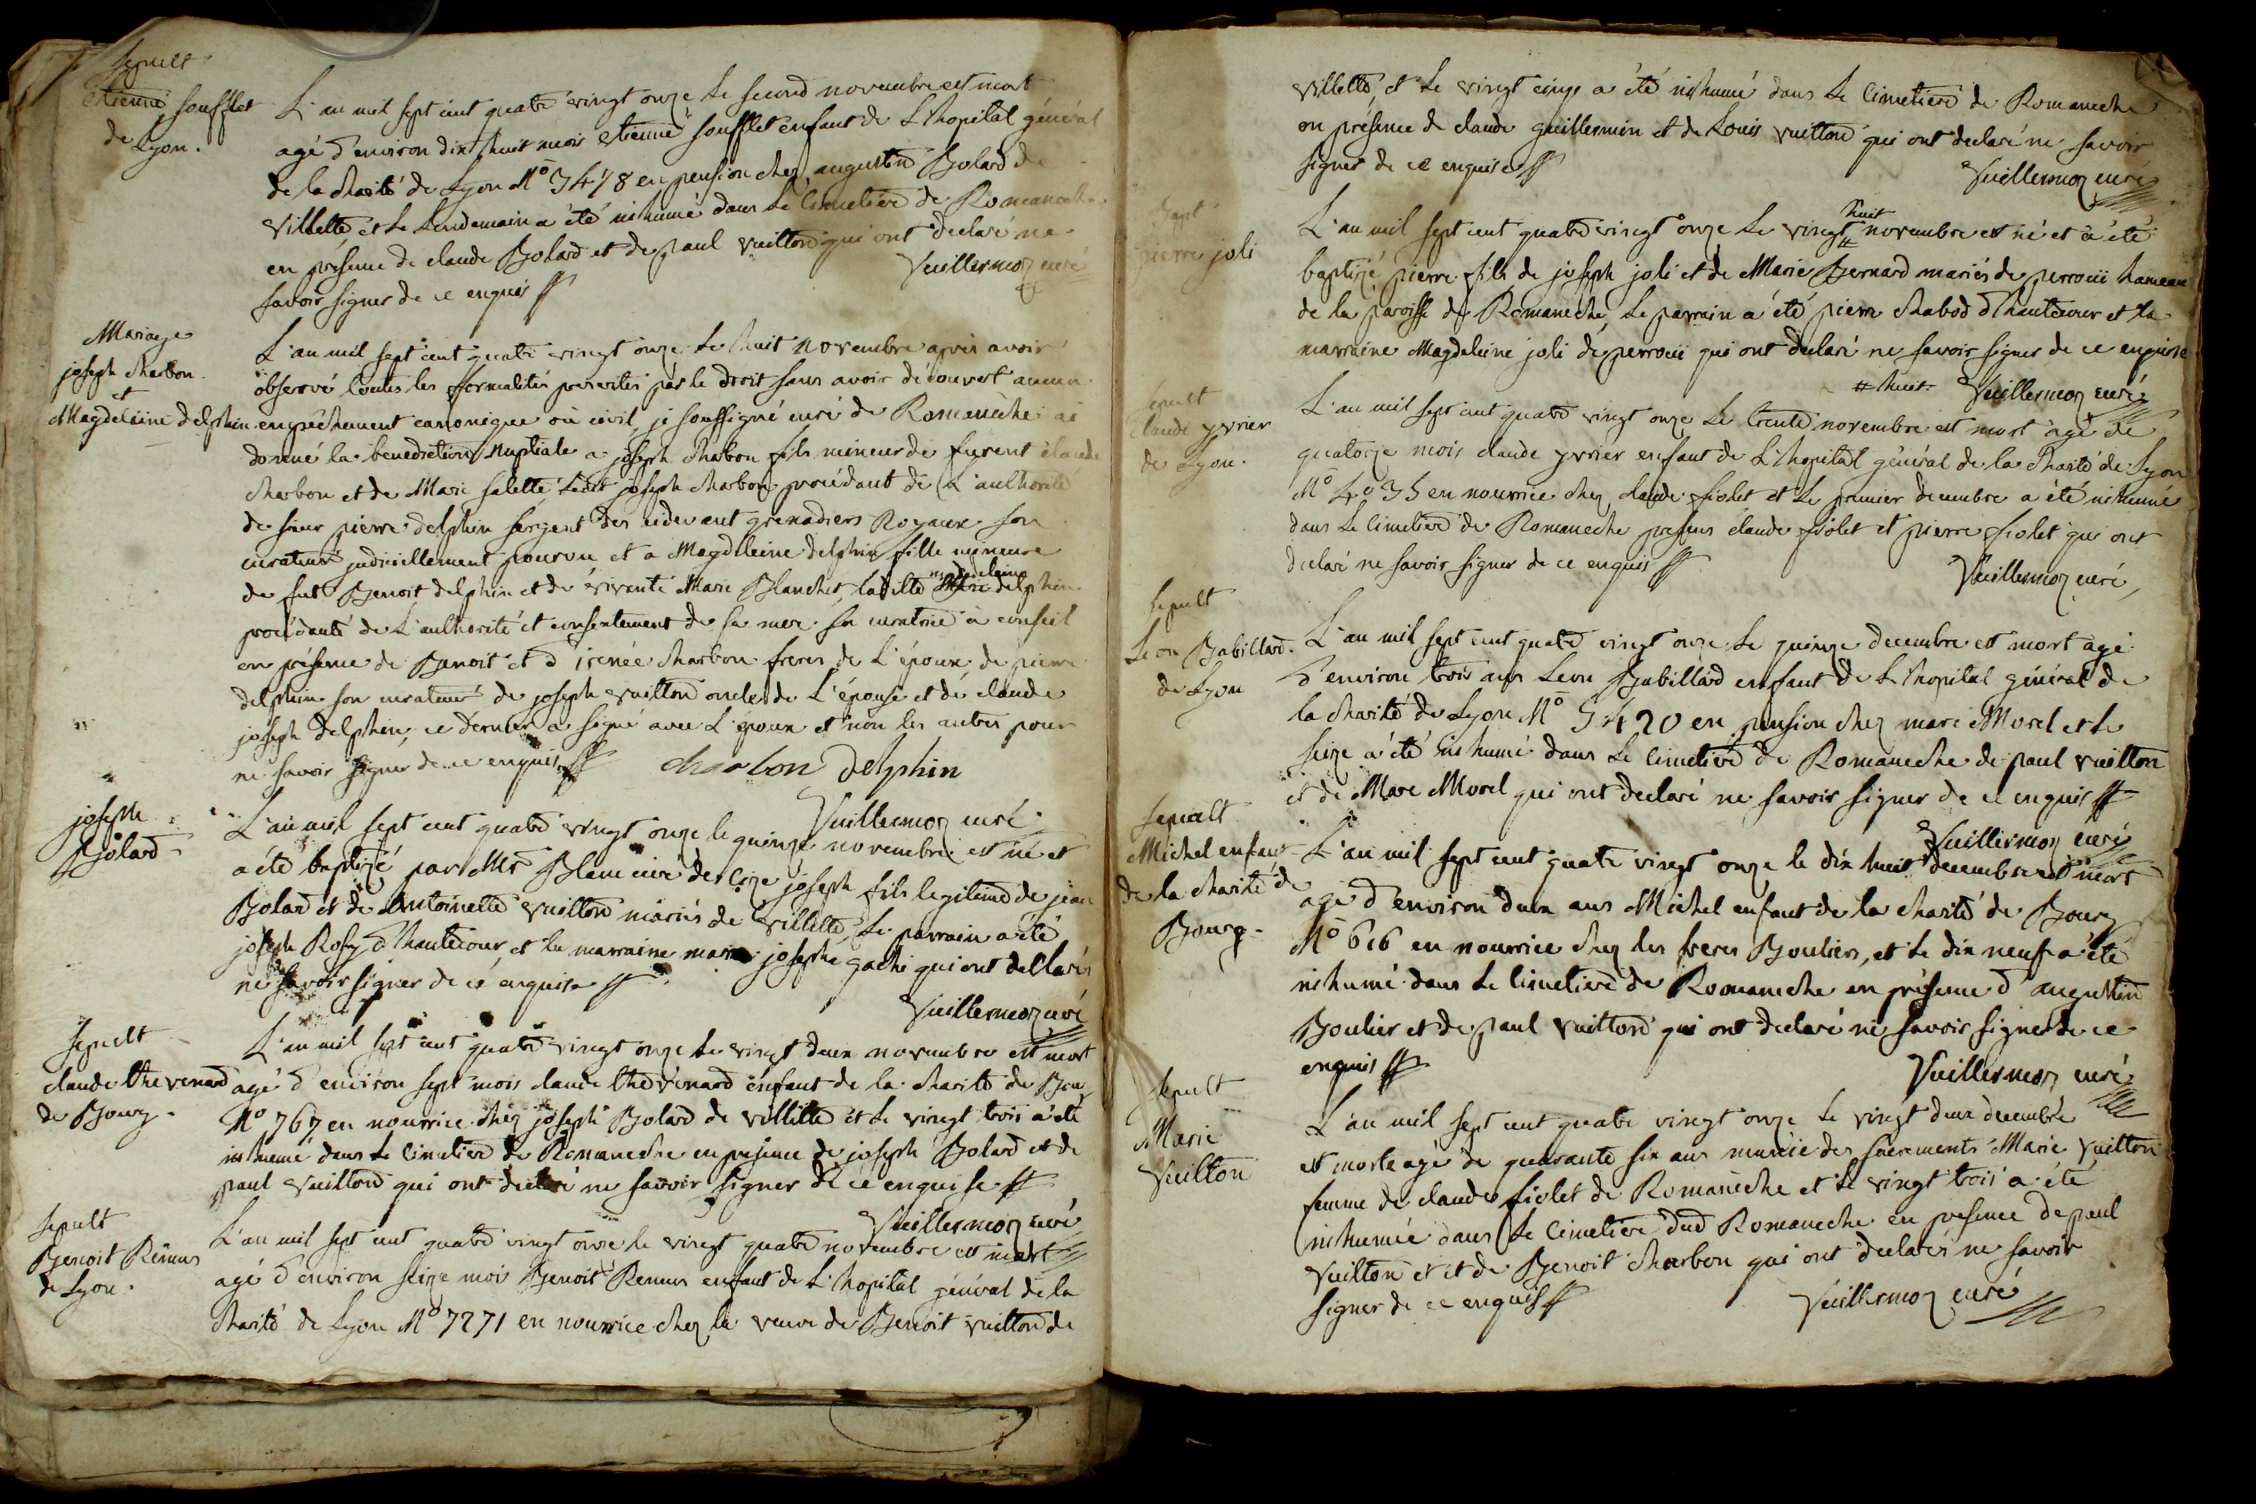 Sepult
etienne soufflet
de Lyon.
L'an mil sept cent quatre vingt onze le second novembre est mort
agé d'environ dix huit mois etienne soufflet enfant de L'hopital général
de la charité de Lyon N° 5478 en pension chez augustin Bolard de
Villette et le lendemain a été inhumé dans le cimetiere de Romaneche
en présence de claude Bolard et de paul vuitton qui ont declaré ne
savoir signer de ce enquis
Vuillermoz curé
Mariage
joseph charbon
et
Magdeleine delphin
L'an mil sept cent quatre vingt onze le huit novembre après avoir
observé toutes les formalités prescrites par le droit sans avoir découvert aucun
empêchement canonique ou civil, je soussigné curé de Romanêche ai
donné la benediction nuptiale a joseph charbon fils mineur de furent claude
charbon et de Marie salette, ledit joseph charbon procédant de L'authorité
de sieur pierre delphin sergent des cidevant grenadiers Royaux son
curateur judiciellement pourvu et a Magdeleine delphin fille mineure
de fut Benoit delphin et de vivante Marie Blanchet, ladite magdeleine delphin
procédante de L'authorité et consentement de sa mere sa curatrice a conseil
en présence de Benoit et d'irenée charbon freres de L'époux, de pierre
delphin son curateur de joseph vuitton oncle de L'épouse et de claude
joseph delphin, ce dernier a signé avec L'époux et non les autres pour
ne savoir signer de ce enquis
charbon delphin
Vuillermoz curé
joseph
Bolard
L'an mil sept cent quatre vingt onze le quinze novembre est né et
a été baptizé par Mr Blanc curé de cize joseph fils legitime de jean
Bolard et de Antoinette vuitton mariés de villette, le parrain a été
joseph Rosy d'hautecour, et la marraine marie josephe gache qui ont dellarés
ne savoir signer de ce enquise
Vuillermoz curé
Sepult
claude thevenard
de Bourg.
L'an mil sept cent quatre vingt onze le vingt deux novembre est mort
agé d'environ sept mois claude thevenard enfant de la charité de Bourg
N° 767 en nourrice chez joseph Bolard de villette et le vingt trois a été
inhumé dans le cimetiere de Romaneche en présence de joseph Bolard et de
paul Vuitton qui ont declaré ne savoir signer de ce enquise
Vuillermoz curé
Sepult
Benoit Remus
de Lyon.
L'an mil sept cent quatre vingt onze le vingt quatre novembre est mort
agé d'environ seize mois Benoit Remus enfant de L'hopital général de la
charité de Lyon N° 7271 en nourrice chez la veuve de Benoit vuitton de
villette, et le vingt cinq a été inhumé dans le cimetiere de Romaneche
en présence de claude guillermin et de Louis vuitton qui ont declaré ne savoir
signer de ce enquise
Vuillermoz curé
Bapt
pierre joli
L'an mil sept cent quatre vingt onze le vingt huit novembre est né et a été
baptizé pierre fils de joseph joli et de Marie Bernard mariés de perrouii hameau
de la paroisse de Romaneche, le parrain a été pierre chabod d'hautecour et la
marraine Magdeleine joli de perrouii qui ont declaré ne savoir signer de ce enquise
# huit Vuillermoz curé
Sepult
claude yvrier
de Lyon.
L'an mil sept cent quatre vingt onze le trente novembre est mort agé de
quatorze mois claude yvrier enfant de L'hopital général de la charité de Lyon
N° 4035 en nourrice chez claude fiolet et le premier decembre a été inhumé
dans le cimetiere de Romaneche presens claude fiolet et pierre fiolet qui ont
declaré ne savoir signer de ce enquis
Vuillermoz curé
Sepult
Leon Babillard.
de Lyon
L'an mil sept cent quatre vingt onze le quinze decembre est mort agé
d'environ trois ans Leon Babillard enfant de L'hopital général de
la charité de Lyon N° 5420 en pension chez marc Morel et le
seize a été inhumé dans le cimetiere de Romaneche de paul vuitton
et de Marc Morel qui ont declaré ne savoir signer de ce enquis
Vuillermoz curé
Sepult
Michel enfant
de la charité de
Bourg.
L'an mil sept cent quatre vingt onze le dix huit decembre est mort
agé d'environ deux ans Michel enfant de la charité de Bourg
N° 616 en nourrice chez les freres Boulier, et le dix neuf a été
inhumé dans le cimetiere de Romaneche en présence d'augustin
Boulier et de paul vuitton qui ont declaré ne savoir signer de ce
enquis
Vuillermoz curé
Sepult
Marie
Vuitton
L'an mil sept cent quatre vingt onze le vingt deux decembre
est morte agé de quarante six ans munie des sacrements Marie Vuitton
femme de claude fiolet de Romaneche et le vingt trois a été
inhumée dans le cimetiere dud Romaneche en présence de paul
Vuitton et et de Benoit charbon qui ont declarés ne savoir
signer de ce enquis
Vuillermoz curé